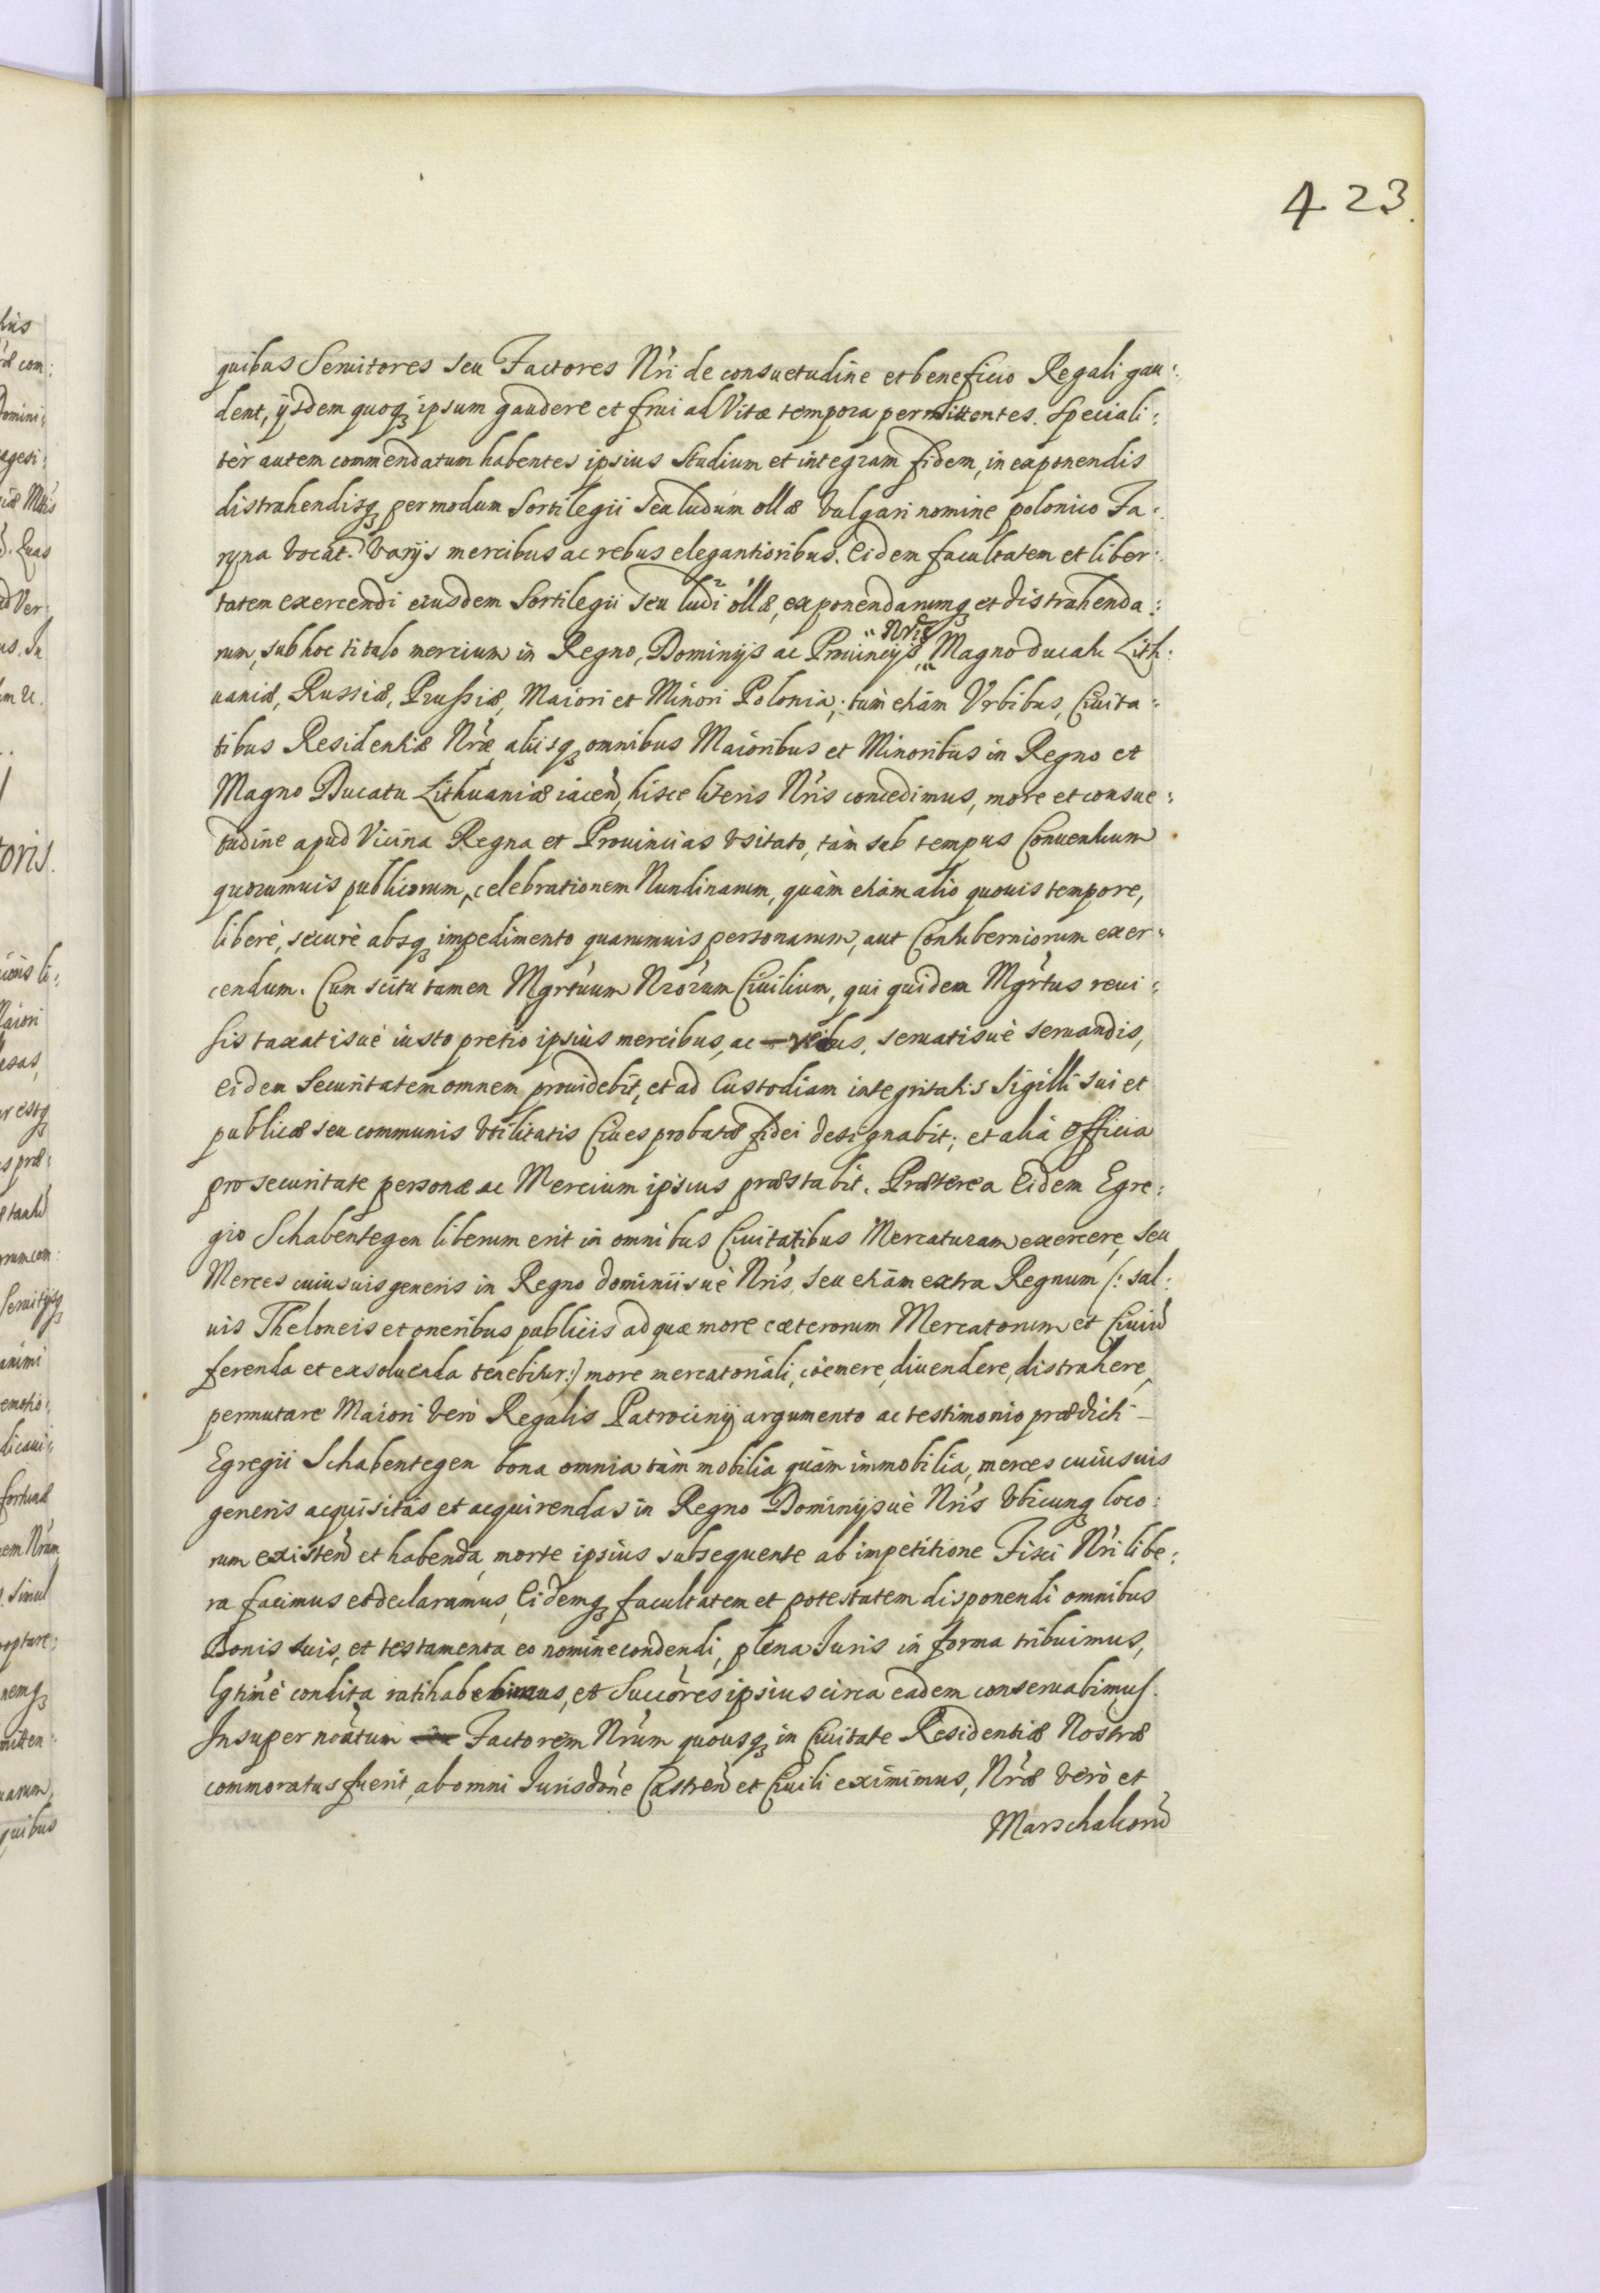 423.
quibus Seruitores seu Factores Nri de consuetudine et beneficio Regali gau:
dent, ijsdem quoq ipsum gaudere et frui ad Vitæ tempora permittentes. Speciali:
tèr autem commendatum habentes ipsius studium et integram fidem, in exponendis
distrahendisq per modum Sortilegii seu ludum ollæ vulgari nomine polonico Fa:
ryna vocat. varijs mercibus ac rebus elegantioribus. Eidem facultatem et liber:
tatem exercendi eiusdem Sortilegii seu ludi ollæ, exponendarumq et distrahenda:
rum, sub hoc titulo mercium in Regno, Dominijs ac Prouincijs Nris Magno ducatu Lith:
uaniæ, Russiæ, Prussiæ, Maiori et Minori Polonia, tum etiam Vrbibus, Ciuita:
tibus Residentiæ Nræ, aliisq omnibus Maioribus et Minoribus in Regno et
Magno Ducatu Lithuaniæ iacen, hisce literis Nris concedimus, more et consue:
tudine apud Vicina Regna et Prouincias vsitato, tàm sub tempus Conuentuum
quorumuis publicorum, celebrationem Nundinarum, quàm etiam alio quouis tempore,
liberè, securè absq impedimento quarumuis personarum, aut Contuberniorum exer:
cendum. Cum scitu tamen Mgrtuum Nrorum Ciuilium, qui quidem Mgrtus reui:
sis taxatisuè iusto pretio ipsius mercibus, ac rebus, seruatisuè seruandis,
eidem Securitatem omnem prouidebit, et ad Custodiam integritatis Sigilli sui et
publicæ seu communis vtilitatis Ciues probatæ fidei designabit; et alia officia
pro securitate personæ ac Mercium ipsius præstabit. Præterea Eidem Egre:
gio Schabentegen liberum erit in omnibus Ciuitatibus Mercaturam exercere, seu
Merces cuiusuis generis in Regno dominiisuè Nris, seu etiam extra Regnum (: sal:
uis Theloneis et oneribus publicis ad quæ more cæterorum Mercatorum et Ciuiu
ferenda et exsoluenda tenebitur:) more mercatoriali, coemere, diuendere, distrahere,
permutare Maiori verò Regalis Patrocinij argumento ac testimonio prædicti
Egregii Schabentegen bona omnia tàm mobilia quàm immobilia, merces cuiusuis
generis acquisitas et acquirendas in Regno Dominijsuè Nris vbicunq loco:
rum existen et habenda, morte ipsius subsequente ab impetitione Fisci Nri libe:
ra facimus et declaramus, Eidemq facultatem et potestatem disponendi omnibus
Bonis suis, et testamenta eo nomine condendi, plena Iuris in forma tribuimus,
lgtimè condita ratihabebimus, et Succores ipsius circa eadem conseruabimus.
Insuper noatum Factorem Nrum quousq in Ciuitate Residentiæ Nostræ
commoratus fuerit, ab omni Jurisdone Castren et Ciuili eximimus, Nræ verò et
Marschalcoru